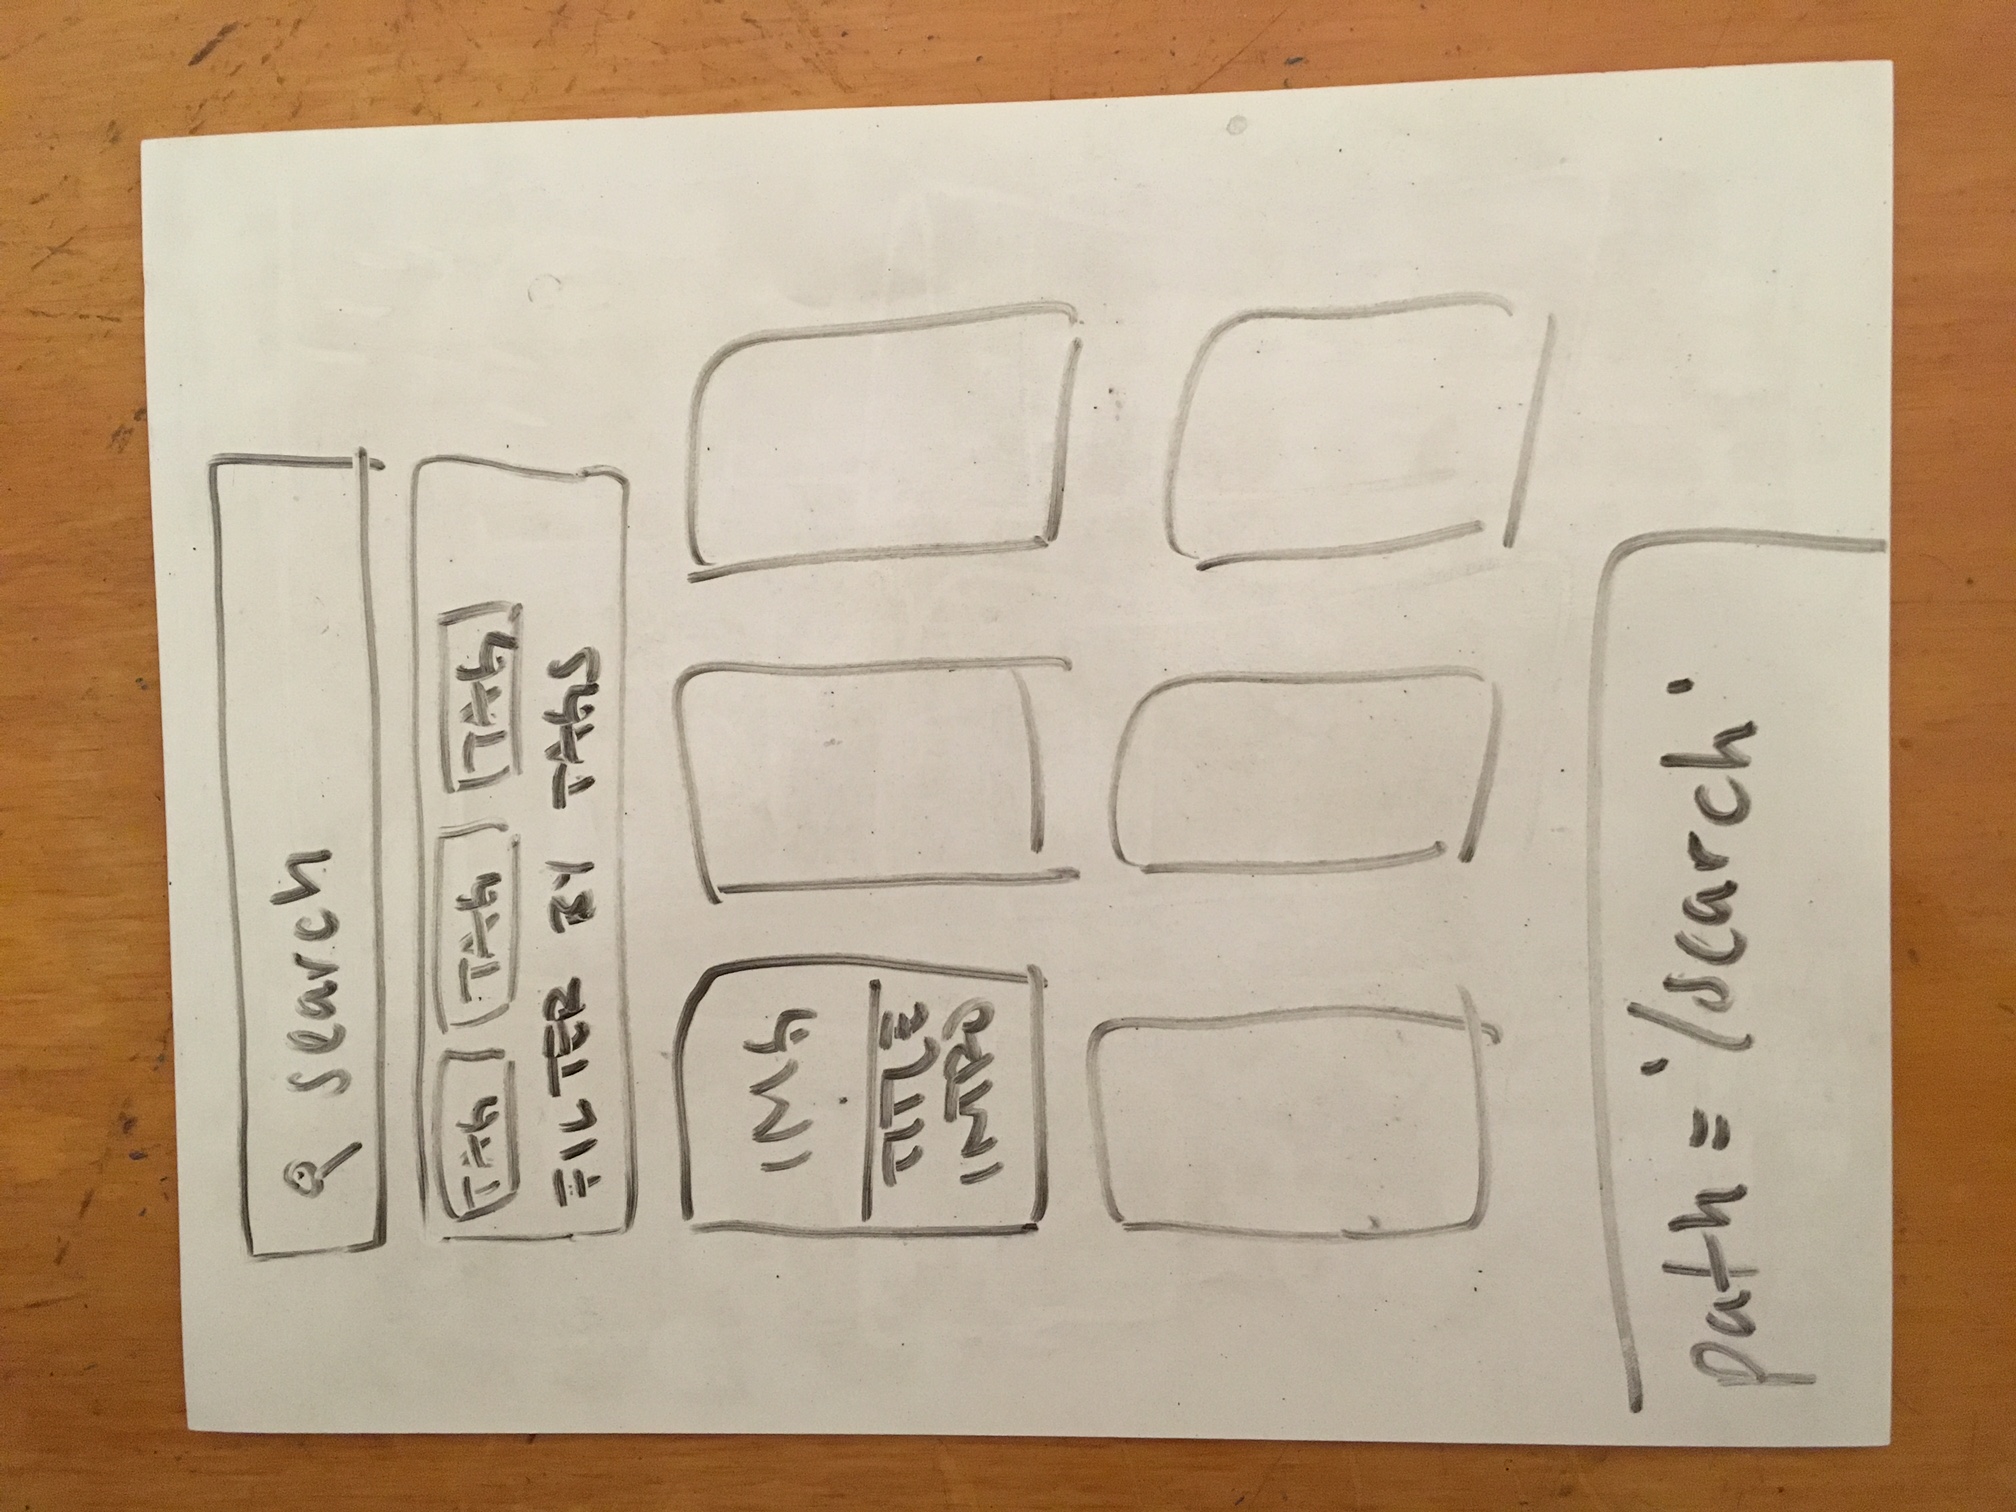 search
TAG TAG TAG
FILTER BY TAGS
IMG
TITLE
INTRO
path = '/search'